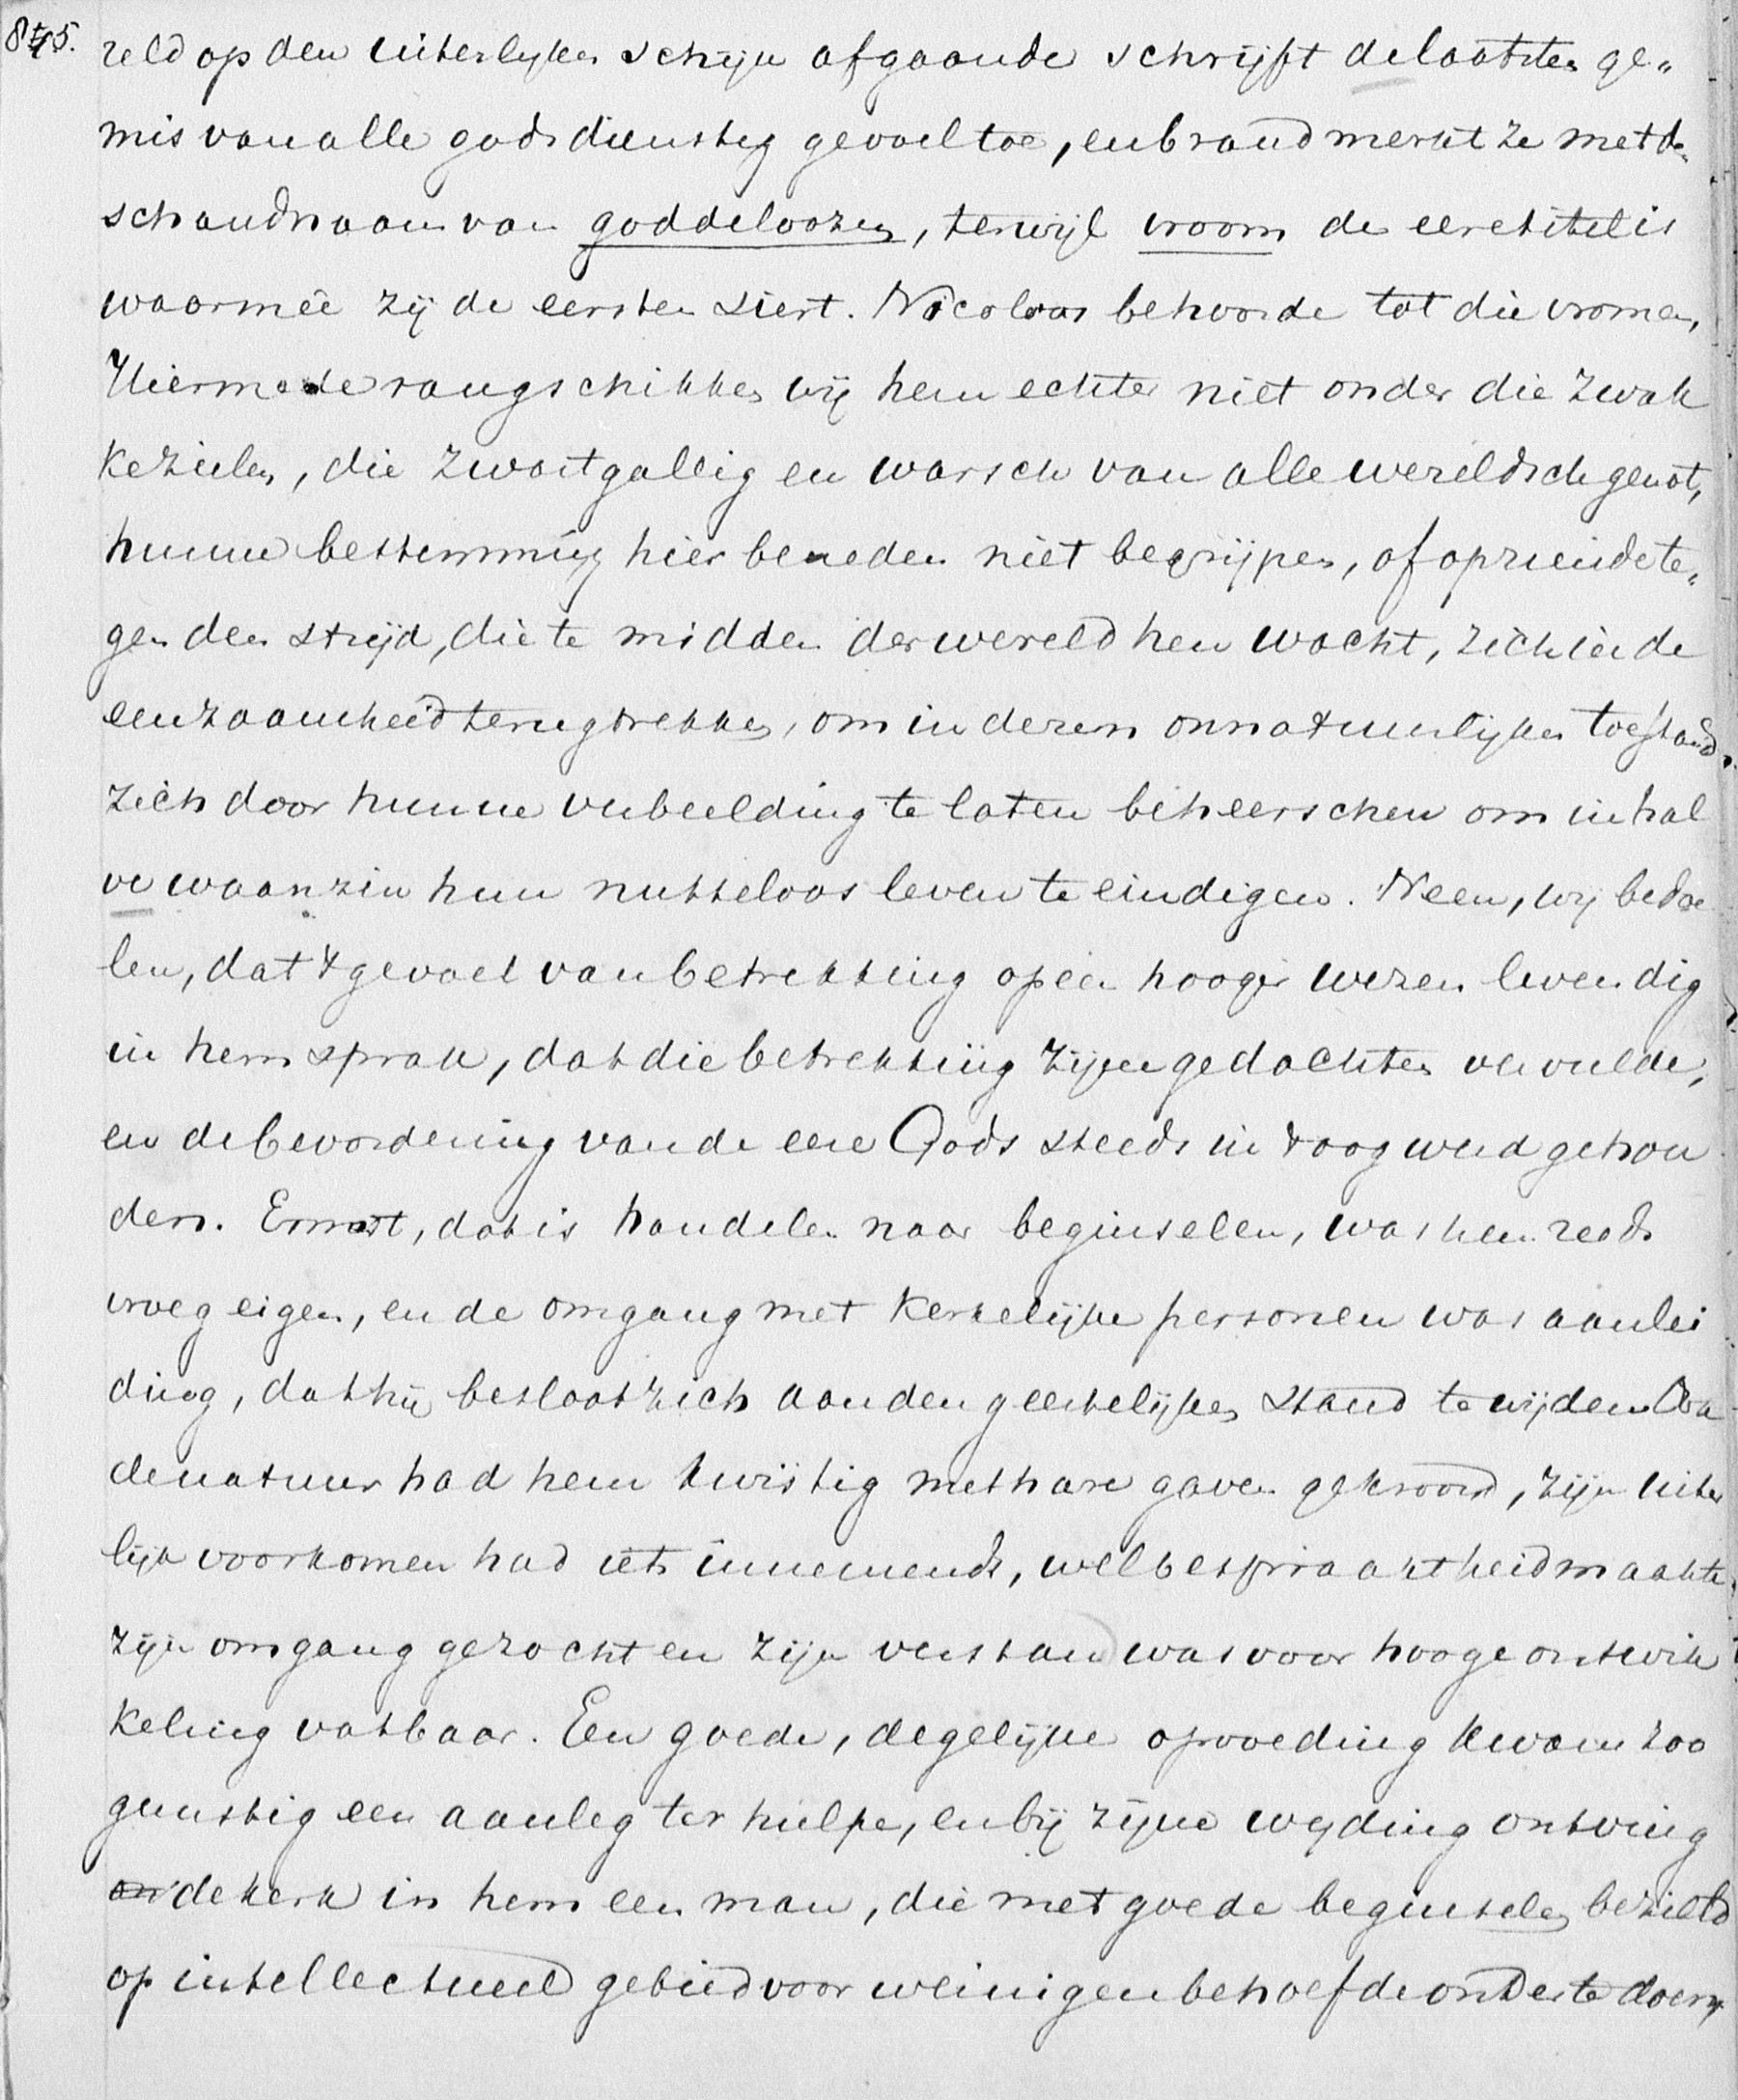 845. reld op den uiterlyken schijn afgaande schrijft de laatsten ge„
mis van alle godsdienstig gevoel toe, en brandmerkt ze met de
schandnaam van goddeloozen, terwijl vroom de eeretitel is
waarmeê zij de eersten siert. Nicolaas behoorde tot die vromen,
Hiermede rangschikken wij hem echter niet onder die zwak
ke zielen, die zwartgallig en warsch van alle wereldsch genot,
hunne bestemming hier beneden niet begrijpen, of opziende te„
gen den strijd, die te midden der wereld hen wacht, zich in de
eenzaamheid terugtrekken, om in dezen onnatuurlijken toestand
zich door hunne verbeelding te laten beheerschen om in hal
ve waanzin hun nutteloos leven te eindigen. Neen, wij bedoe
len, dat 't gevoel van betrekking op een hooger wezen levendig
in hem sprak, dat die betrekking zijne gedachten vervulde,
en de bevordering van de eere Gods steeds in 't oog werd gehou
den. Ernst, dat is handelen naar beginselen, was hem reeds
vroeg eigen, en de omgang met kerkelijke personen was aanlei
ding, dat hij besloot zich aan den geestelijken stand te wijden Ook
de natuur had hem kwistig met hare gaven gekroond, zijn uiter
lijk voorkomen had iets innemends, welbespraaktheid maakte
zijn omgang gezocht en zijn verstand was voor hooge ontwik
keling vatbaar. Een goede, degelijke opvoeding kwam zoo
gunstig een aanleg ter hulpe, en bij zijne wyding ontving
de kerk in hem een man, die met goede beginselen bezield
op intellectueel gebied voor weinigen behoefde onder te doen,